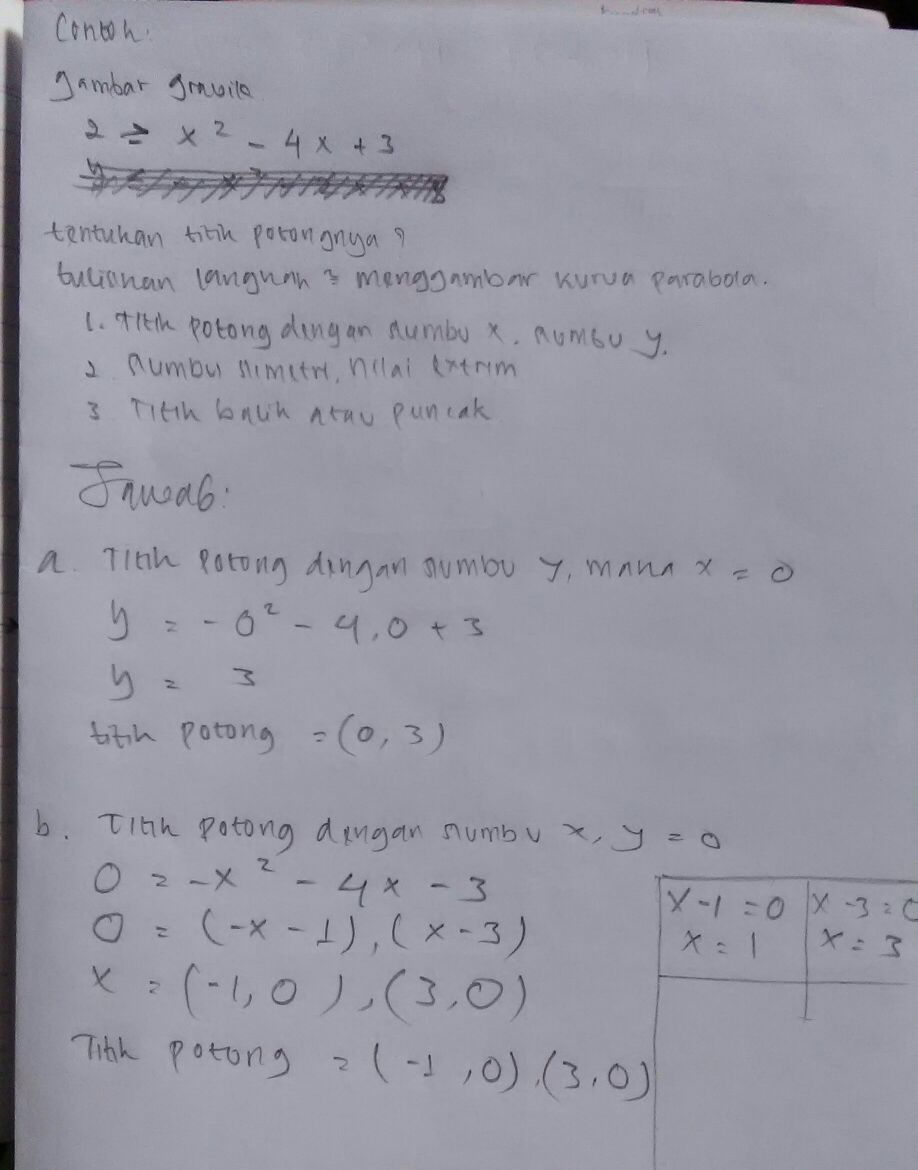 Contoh:
gambar gravik
2 = x² - 4x + 3
tentukan titik potongnya?
tuliskan langkah² menggambar kurva parabola.
1. Titik potong dengan sumbu x, sumbu y.
2 Sumbu simetri, nilai extrim
3 Titik balik atau puncak
Jawab:
a. Titik potong dengan sumbu y, maka x = 0
y = -0² - 4.0 + 3
y = 3
titik potong = (0, 3)
b. Titik potong dengan sumbu x, y = 0
0 = -x² - 4x - 3
0 = (-x - 1), (x - 3)
x = (-1, 0), (3, 0)
Titik potong = (-1, 0), (3, 0)
x - 1 = 0 x - 3 = 0
x = 1 x = 3